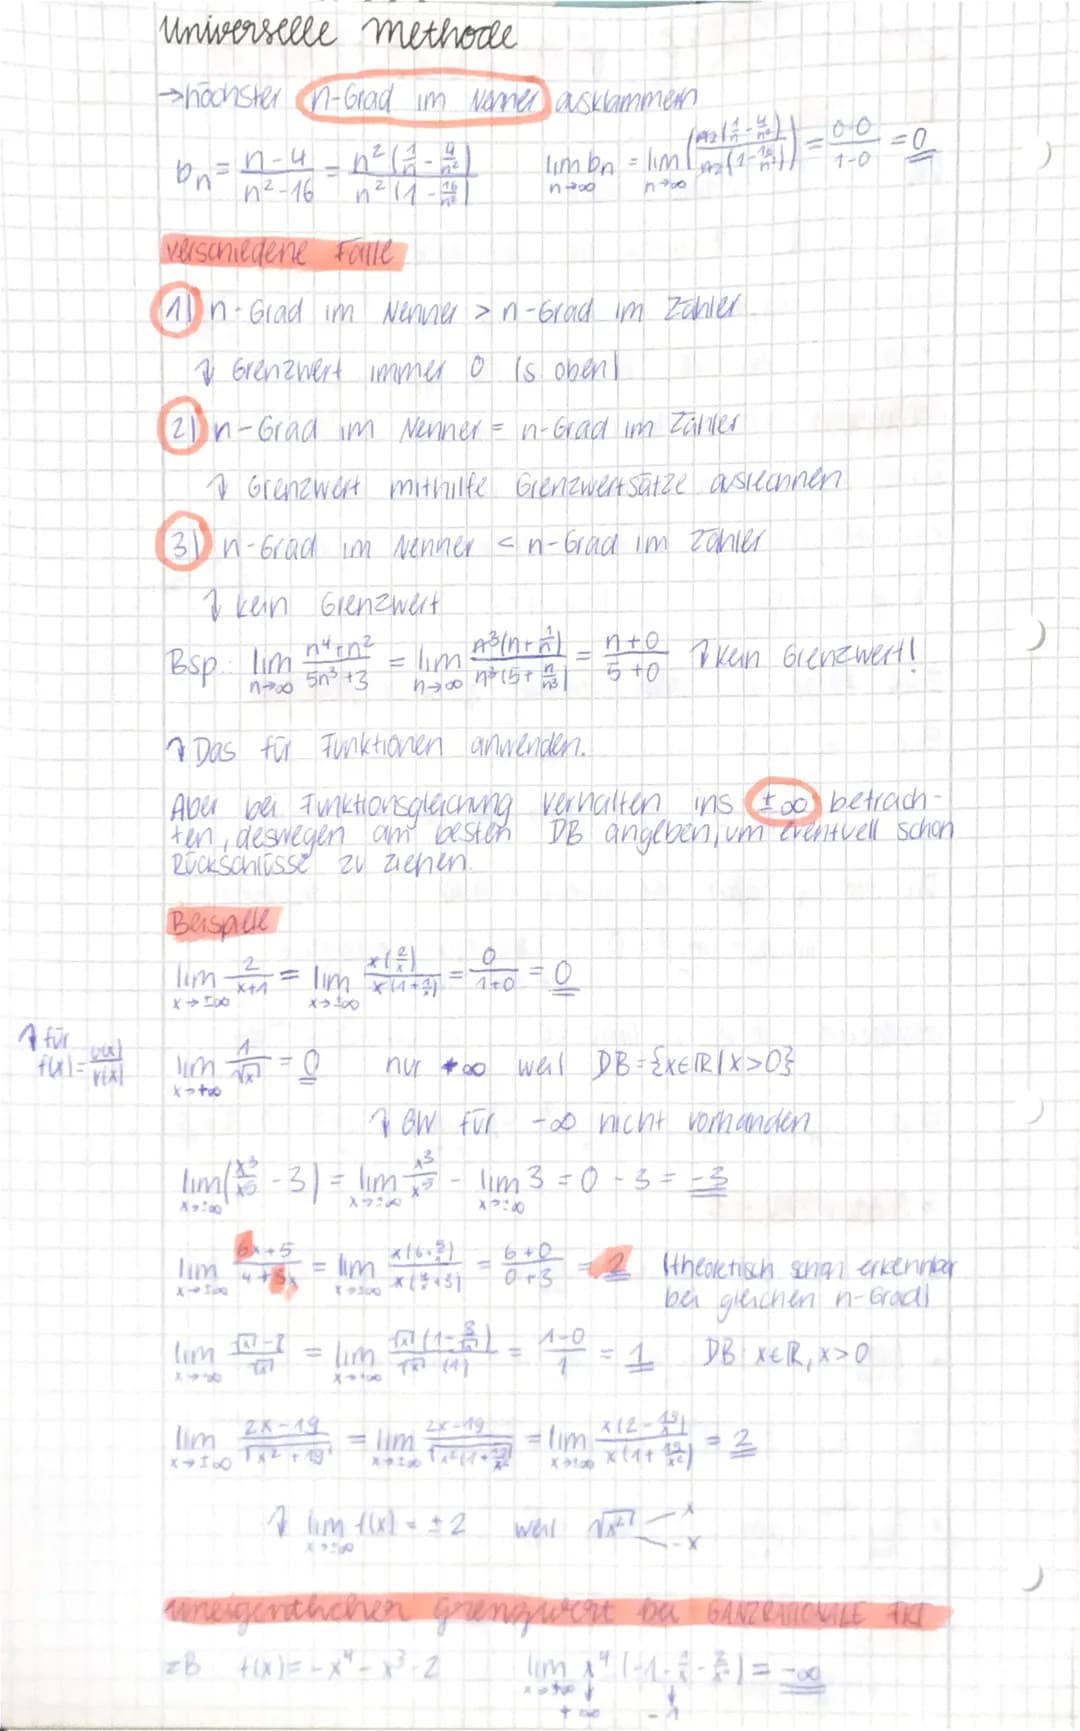 Universelle Methode
→höchster n-Grad im Nenner ausklammern
bn = n-4 / n²-16 = n²(1/n - 4/n²) / n²(1 - 16/n²)   lim n→∞ bn = lim n→∞ (n²(1/n - 4/n²) / n²(1 - 16/n²)) = 0-0 / 1-0 = 0
verschiedene Fälle
1) n-Grad im Nenner > n-Grad im Zähler
↴ Grenzwert immer 0 (s. oben)
2) n-Grad im Nenner = n-Grad im Zähler
↴ Grenzwert mithilfe Grenzwertsätze ausrechnen
3) n-Grad im Nenner < n-Grad im Zähler
↴ kein Grenzwert
Bsp.: lim n→∞ n⁴+n² / 5n³+3 = lim n→∞ n³(n+1/n) / n³(5+n/n³) = n+0 / 5+0 ↴ kein Grenzwert!
↴ Das für Funktionen anwenden.
Aber bei Funktionsgleichung verhalten ins ±∞ betrach-
ten, deswegen am besten DB angeben, um eventuell schon
Rückschlüsse zu ziehen.
Beispiele
lim x→±∞ 2 / x+1 = lim x→±∞ x(2/x) / x(1+1/x) = 0 / 1+0 = 0
↴ für
f(x) = u(x) / v(x)
lim x→+∞ 1 / √x = 0   nur +∞ weil DB={x∈ℝ|x>0}
↴ GW für -∞ nicht vorhanden
lim x→±∞ (x³/x⁵ - 3) = lim x→±∞ x³/x⁵ - lim x→±∞ 3 = 0 - 3 = -3
lim x→±∞ 6x+5 / 4+3x = lim x→±∞ x(6+5/x) / x(4/x+3) = 6+0 / 0+3 = 2 (theoretisch schon erkennbar
bei gleichen n-Grad)
lim x→+∞ √x-8 / √x = lim x→+∞ √x(1-8/√x) / √x (1) = 1-0 / 1 = 1   DB: x∈ℝ, x>0
lim x→±∞ 2x-19 / √x²+19 = lim x→±∞ 2x-19 / √x²(1+19/x²) = lim x→±∞ x(2-19/x) / x(1+19/x²) = 2
↴ lim x→±∞ f(x) = ±2 weil √x² x -x
uneigentlicher Grenzwert bei GANZRATIONALE FKT
zB f(x)=-x⁴-x³-2   lim x→±∞ x⁴(-1-1/x-2/x⁴) = -∞
+∞ -1